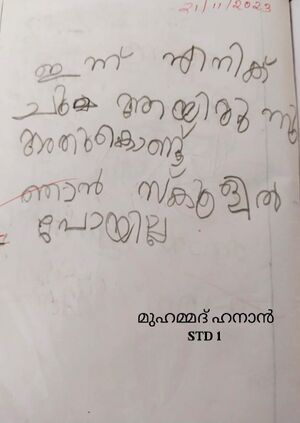 21/11/2023
ഇന്ന് എനിക്
ചുമ ആയിരു ന്നു
അതുകൊണ്ട്
ഞാൻ സ്കൂളിൽ
പോയില്ല
മുഹമ്മദ് ഹനാൻ
STD 1